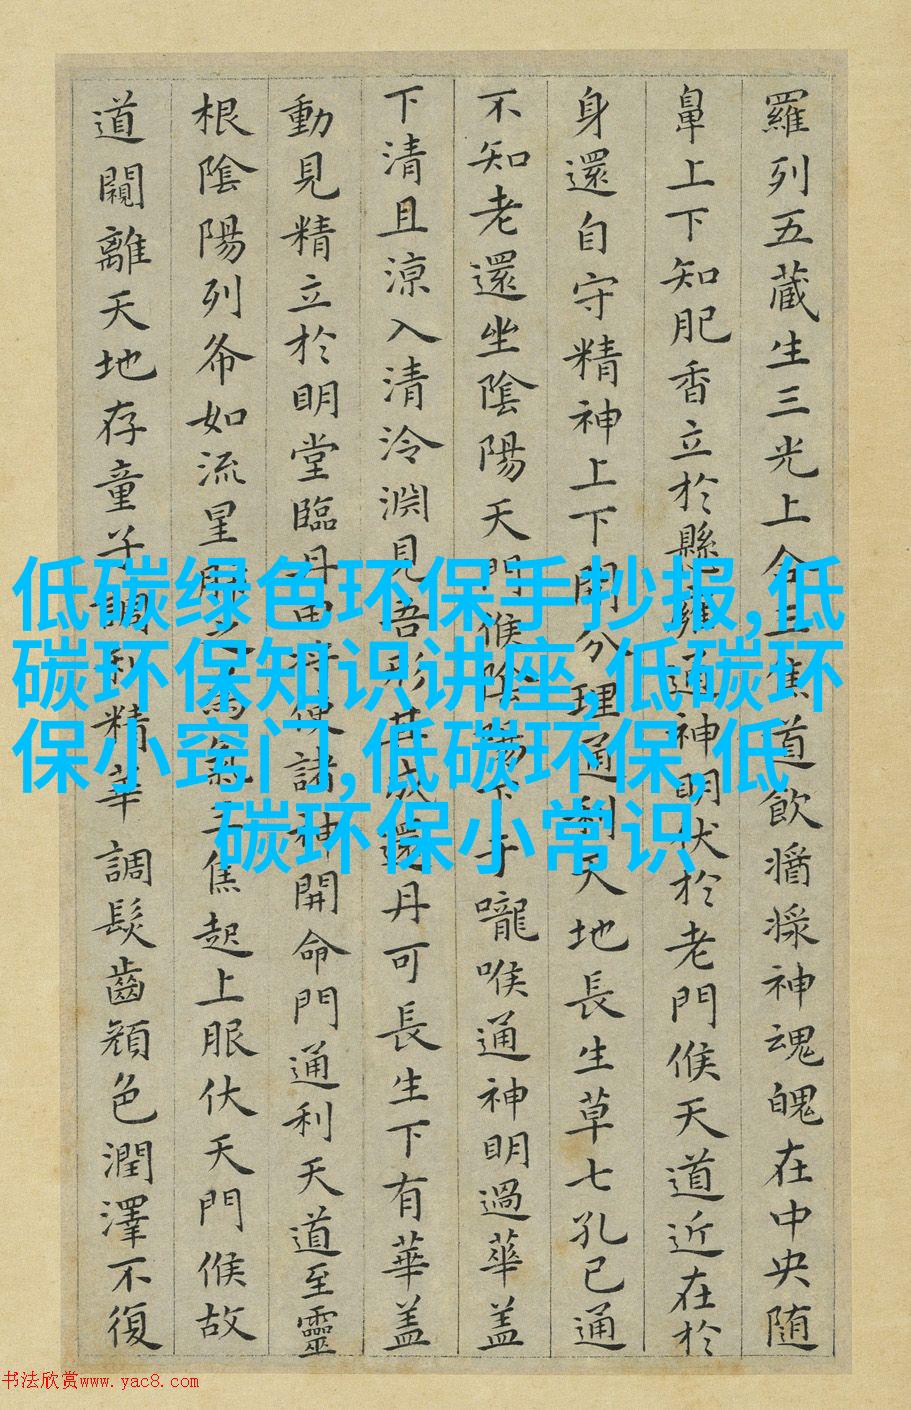 羅列五藏生三光上合三焦道飲漿神魂魄在中央随
鼻上下知肥香立於懸雍通神明伏於老門候天道近在於
身還自守精神上下開分理通利天地長生草七孔已通
不知老還坐陰陽天門候陰陽下于嚨喉通神明過華盖
下清且涼入清泠淵見吾形其成還丹可長生下有華盖
動見精立於明堂臨丹田將使諸神開命門通利天道至靈
根陰陽列布如流星肺之為氣三焦起上服伏天門候故
道闚離天地存童子調利精華調髮齒顏色潤澤不復
低碳绿色环保手抄报,低
碳环保知识讲座,低碳环
保小窍门,低碳环保,低
碳环保小常识
书法欣赏www.yac8.com